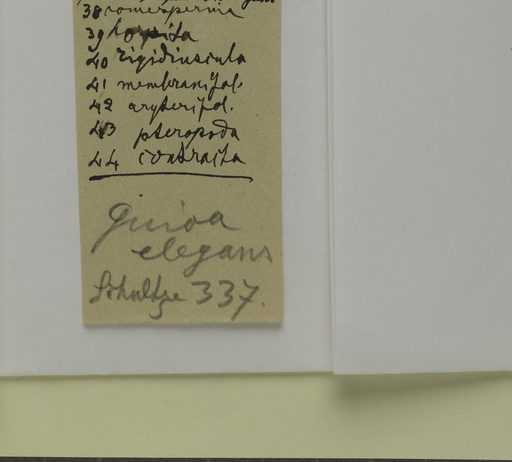 38 comesperma
39 hospita
40 rigidiuscula
41 membranifol.
42 aryterifol.
43 pteropoda
44 contracta
Guioa
elegans
Schultze 337.